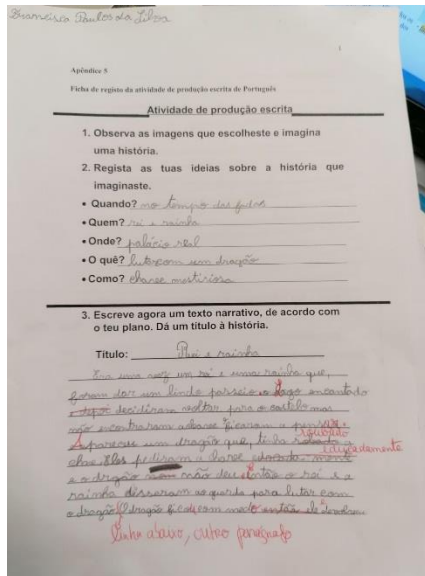 Francisco Santos da Silva
1
Apêndice 5
Ficha de registo da atividade de produção escrita de Português
Atividade de produção escrita
1. Observa as imagens que escolheste e imagina
uma história.
2. Regista as tuas ideias sobre a história que
imaginaste.
• Quando? no tempo das fadas
• Quem? rei e rainha
• Onde? palácio real
• O quê? lutar com um dragão
• Como? chave mesteriosa
3. Escreve agora um texto narrativo, de acordo com
o teu plano. Dá um título à história.
Título: Rei e rainha
Era uma vez um rei e uma rainha que,
foram dar um lindo passeio o lago encantado
decidiram voltar para o castelo mas
não encontraram a chave ficaram a pensar.
roubado
Apareceu um dragão que, tinha a
educadamente
chave. Eles pediram a chave
e o dragão não deu. Então o rei e a
rainha disseram ao guarda para lutar com
o dragão. O dragão ficou com medo então ele
Linha abaixo, outro paragrafo